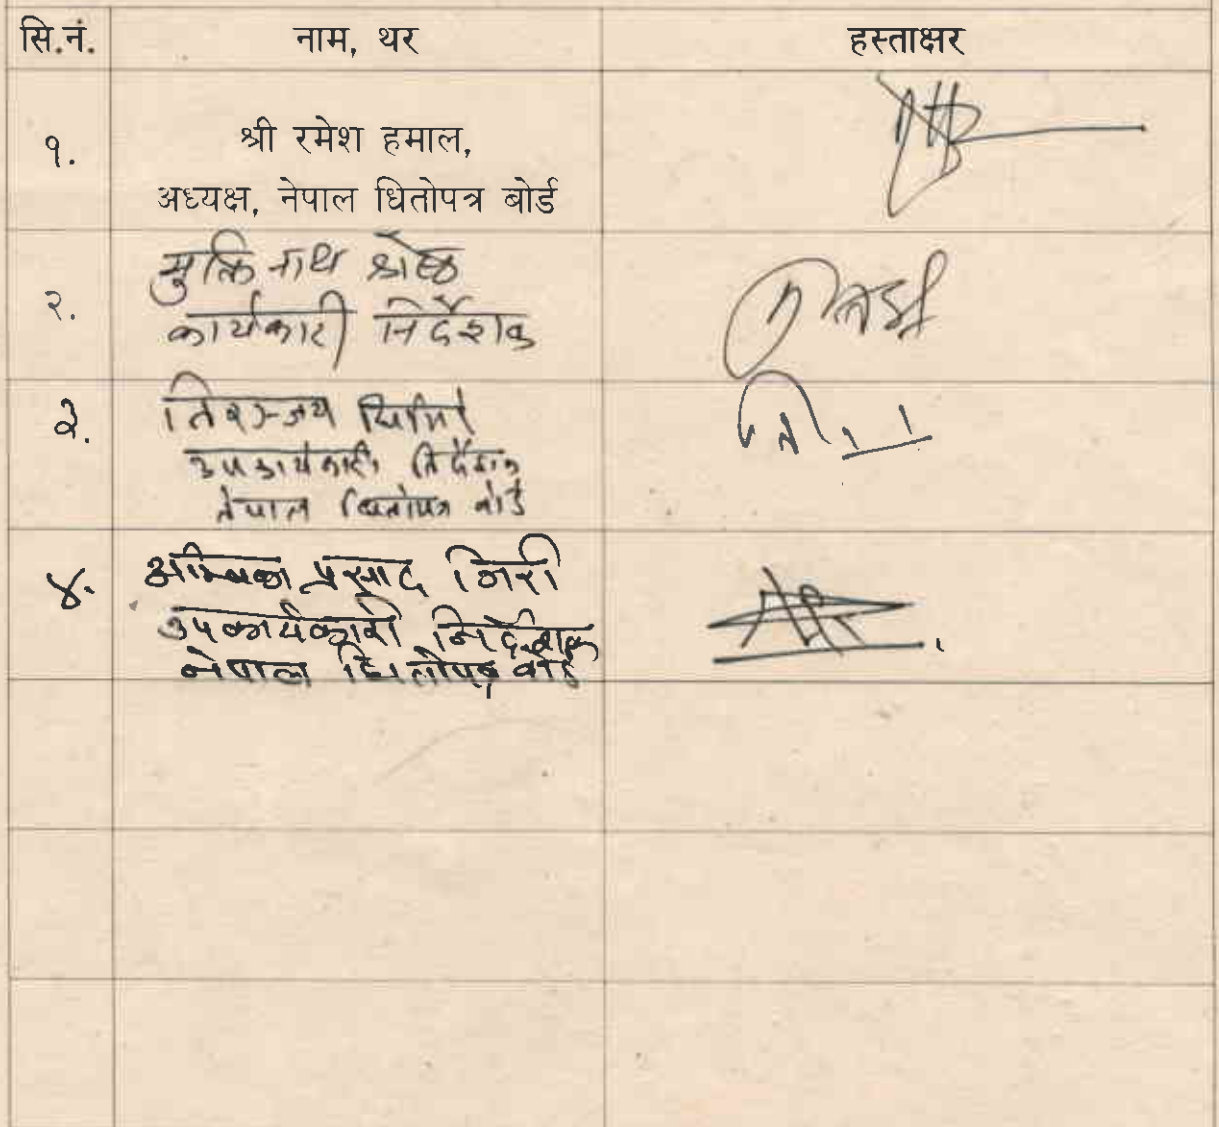 सि.नं. नाम, थर हस्ताक्षर
१. श्री रमेश हमाल,
अध्यक्ष, नेपाल धितोपत्र बोर्ड
२. मुक्ति नाथ श्रेष्ठ
कार्यकारी निर्देशक
३. निरन्जय घिमिरे
उपकार्यकारी निर्देशक
नेपाल धितोपत्र बोर्ड
४. अम्बिका प्रसाद गिरी
उपकार्यकारी निर्देशक
नेपाल धितोपत्र बोर्ड